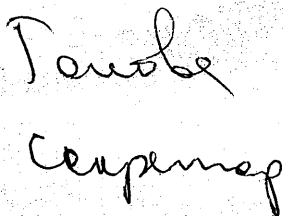 Голова
секретар